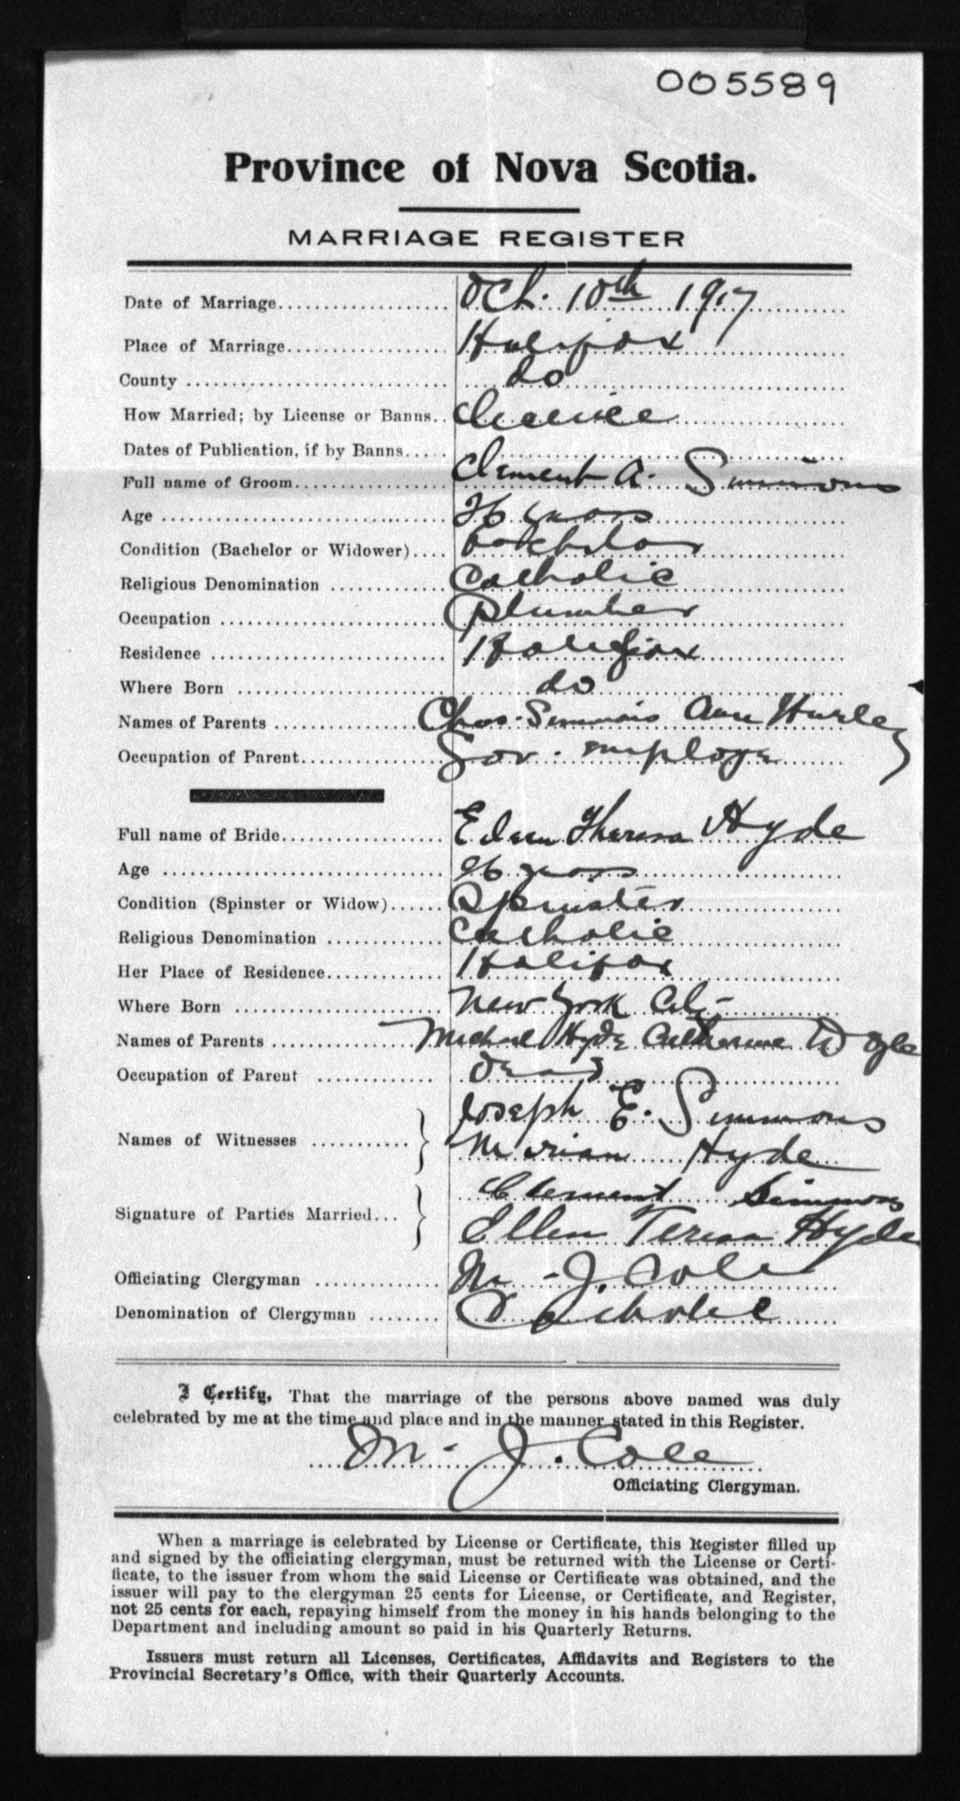 005589
Province of Nova Scotia.
MARRIAGE REGISTER
Date of Marriage Oct. 10th 1917
Place of Marriage Halifax
County do
How Married; by License or Banns License
Dates of Publication, if by Banns
Full name of Groom Clement A. Simmons
Age 26 years
Condition (Bachelor or Widower) bachelor
Religious Denomination Catholic
Occupation plumber
Residence Halifax
Where Born do
Names of Parents Chas. Simmons Ann Hurley
Occupation of Parent Gov. employe
Full name of Bride Theresa Hyde
Age 26 years
Condition (Spinster or Widow) Spinster
Religious Denomination Catholic
Her Place of Residence Halifax
Where Born New York City
Names of Parents Michael Hyde Catherine
Occupation of Parent dead
Names of Witnesses Joseph E. Simmons
Marian Hyde
Signature of Parties Married Clement Simmons
Ellen Teresa Hyde
Officiating Clergyman M. J. Cole
Denomination of Clergyman Catholic
I Certify, That the marriage of the persons above named was duly
celebrated by me at the time and place and in the manner stated in this Register.
M. J. Cole
Officiating Clergyman.
When a marriage is celebrated by License or Certificate, this Register filled up
and signed by the officiating clergyman, must be returned with the License or Certi-
ficate, to the issuer from whom the said License or Certificate was obtained, and the
issuer will pay to the clergyman 25 cents for License, or Certificate, and Register,
not 25 cents for each, repaying himself from the money in his hands belonging to the
Department and including amount so paid in his Quarterly Returns.
Issuers must return all Licenses, Certificates, Affidavits and Registers to the
Provincial Secretary's Office, with their Quarterly Accounts.